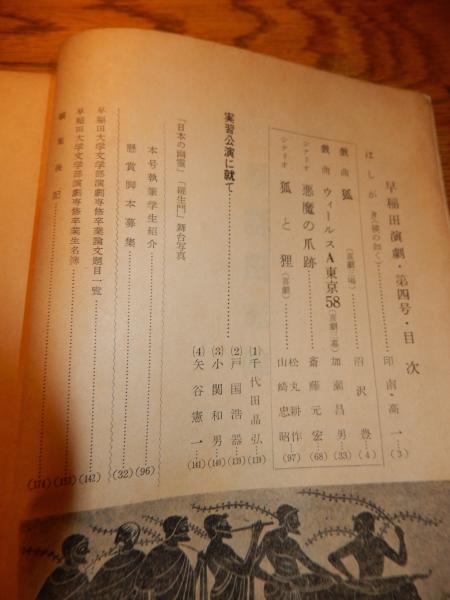 早稲田演劇・第四号・目次
はしがき(鏡の如く)………印南・高一(3)
戯曲 狐(喜劇三場)………沼沢豊(4)
戯曲 ウィールスA東京58(喜劇一幕)………加瀬昌男(33)
シナリオ 悪魔の爪跡………斎藤元宏(68)
シナリオ 狐と狸(喜劇)………松丸耕作 山崎忠昭(97)
実習公演に就て………(1)千代田晶弘(133)
(2)戸国浩器(139)
(3)小関和男(140)
(4)矢谷憲一(141)
「日本の幽霊」「羅生門」舞台写真
本号執筆学生紹介………(96)
懸賞脚本募集………(32)
早稲田大学文学部演劇専修卒業論文題目一覧………(142)
早稲田大学文学部演劇専修卒業生名簿………(153)
編集後記………(174)